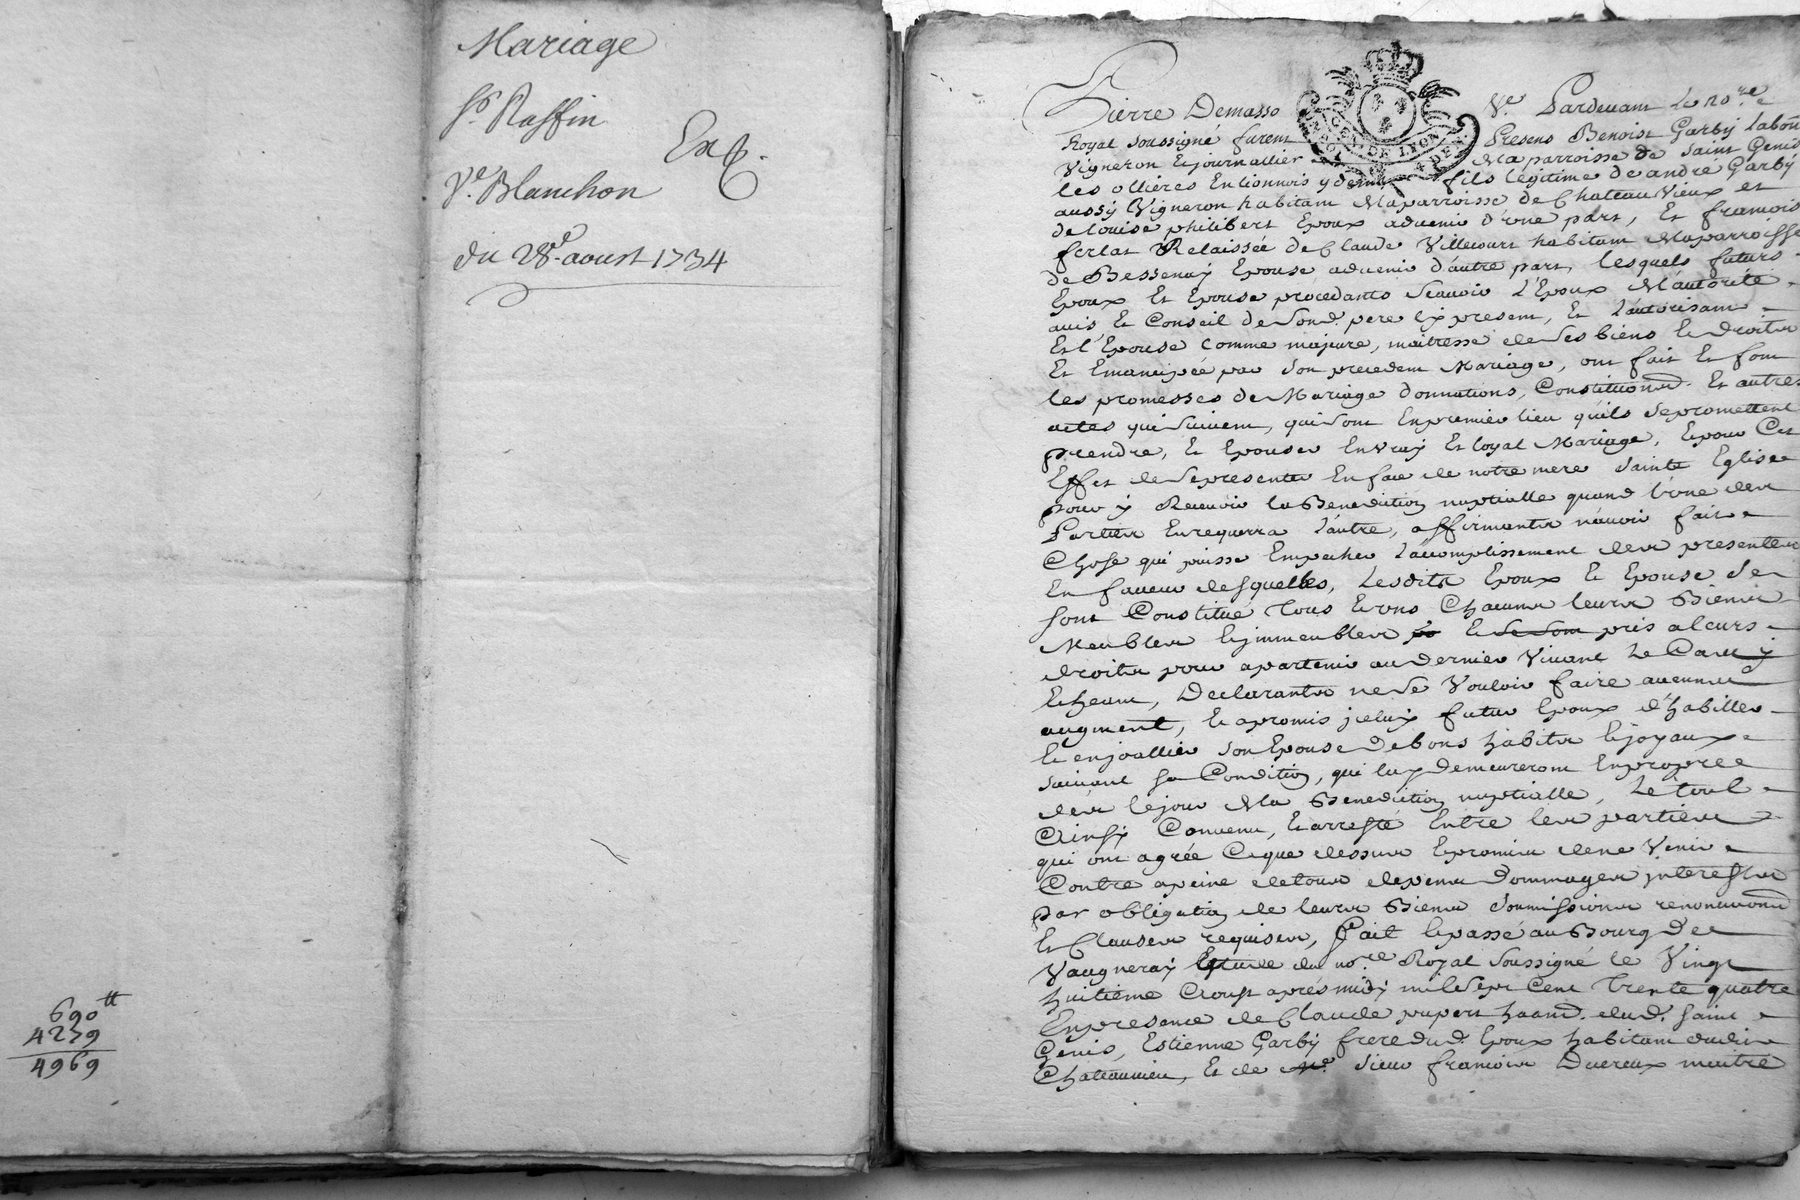 Mariage
Sr. Raffin
Exp.
Ve. Blanchon
du 28e. aoust 1734
690 tt
4239
4969
GEN. DE LYON
Pierre Demasso
Ve. Pardevant le nore.
Royal soussigné furent presens Benoist Garby labou
Vigneron Et journallier dela parroisse de Saint Genis
les ollières En lionnois y demt fils légitime de andré Garby
aussy Vigneron habitant dela parroisse de Chateau Vieux et
de louise philibert Epoux advenir d'vne part, Et françoise
ferlat Relaissée de Claude Villecourt habitant dela parroisse
de Bessenay Epouse advenir d'autre part, lesquels futurs
Epoux Et Epouse procedants scauoir L'Epoux de l'autorité
auis Et Conseil de sond. pere icy present, Et L'autorisant
Et l'Epouse comme majeure, maitresse de ses biens Et droits
Et Emancipée par son precedent Mariage, ont fait Et font
les promesses de Mariage donnations, Constitutions. Et autres
actes qui suiuent, qui sont En premier lieu qu'ils se promettent
prendre, Et Epouser En vray Et loyal Mariage, Et pour Cet
Effet de se presenter En face de notre mere sainte Eglise
pour y Receuoir la Benediction nuptialle quand l'vne des
Parties En requerra L'autre, affirmants n'auoir fait
Chose qui puisse Empecher L'accomplissement des presentes
En faueur desquelles, Lesdits Epoux Et Epouse se
sont Constitué Tous Et vns Chacuns leurs Biens
Meubles Et immeubles Et se sont pris a leurs
droits pour apartenir au dernier Viuant Le Cas y
Echeant, Declarants ne se Vouloir faire aucuns
augment, Et a promis jceluy futur Epoux d'habiller
Et enjoallier son Epouse de bons habits Et joyaux
suiuant sa Condition, qui luy demeureront En propre
dès le jour dela Benediction nuptialle, Le tout
Ainsy Conuenu, Et arresté Entre les parties
qui ont agrée Ce que dessus Et promis de ne Venir
Contre a peine de tous depens Dommages jnterests
par obligation de leurs Biens soumissions renonciations
Et Clauses requises, fait Et passé au Bourg de
Vaugneray Etude du nore. Royal soussigné le Vingt
huitieme Aoust après midy mil sept Cent Trente quatre
En presence de Claude pupert haand. dud. saint
Genis, Estienne Garby frere dud. Epoux habitant audit
Chateauvieu, Et de sieur françois Duereux maitre